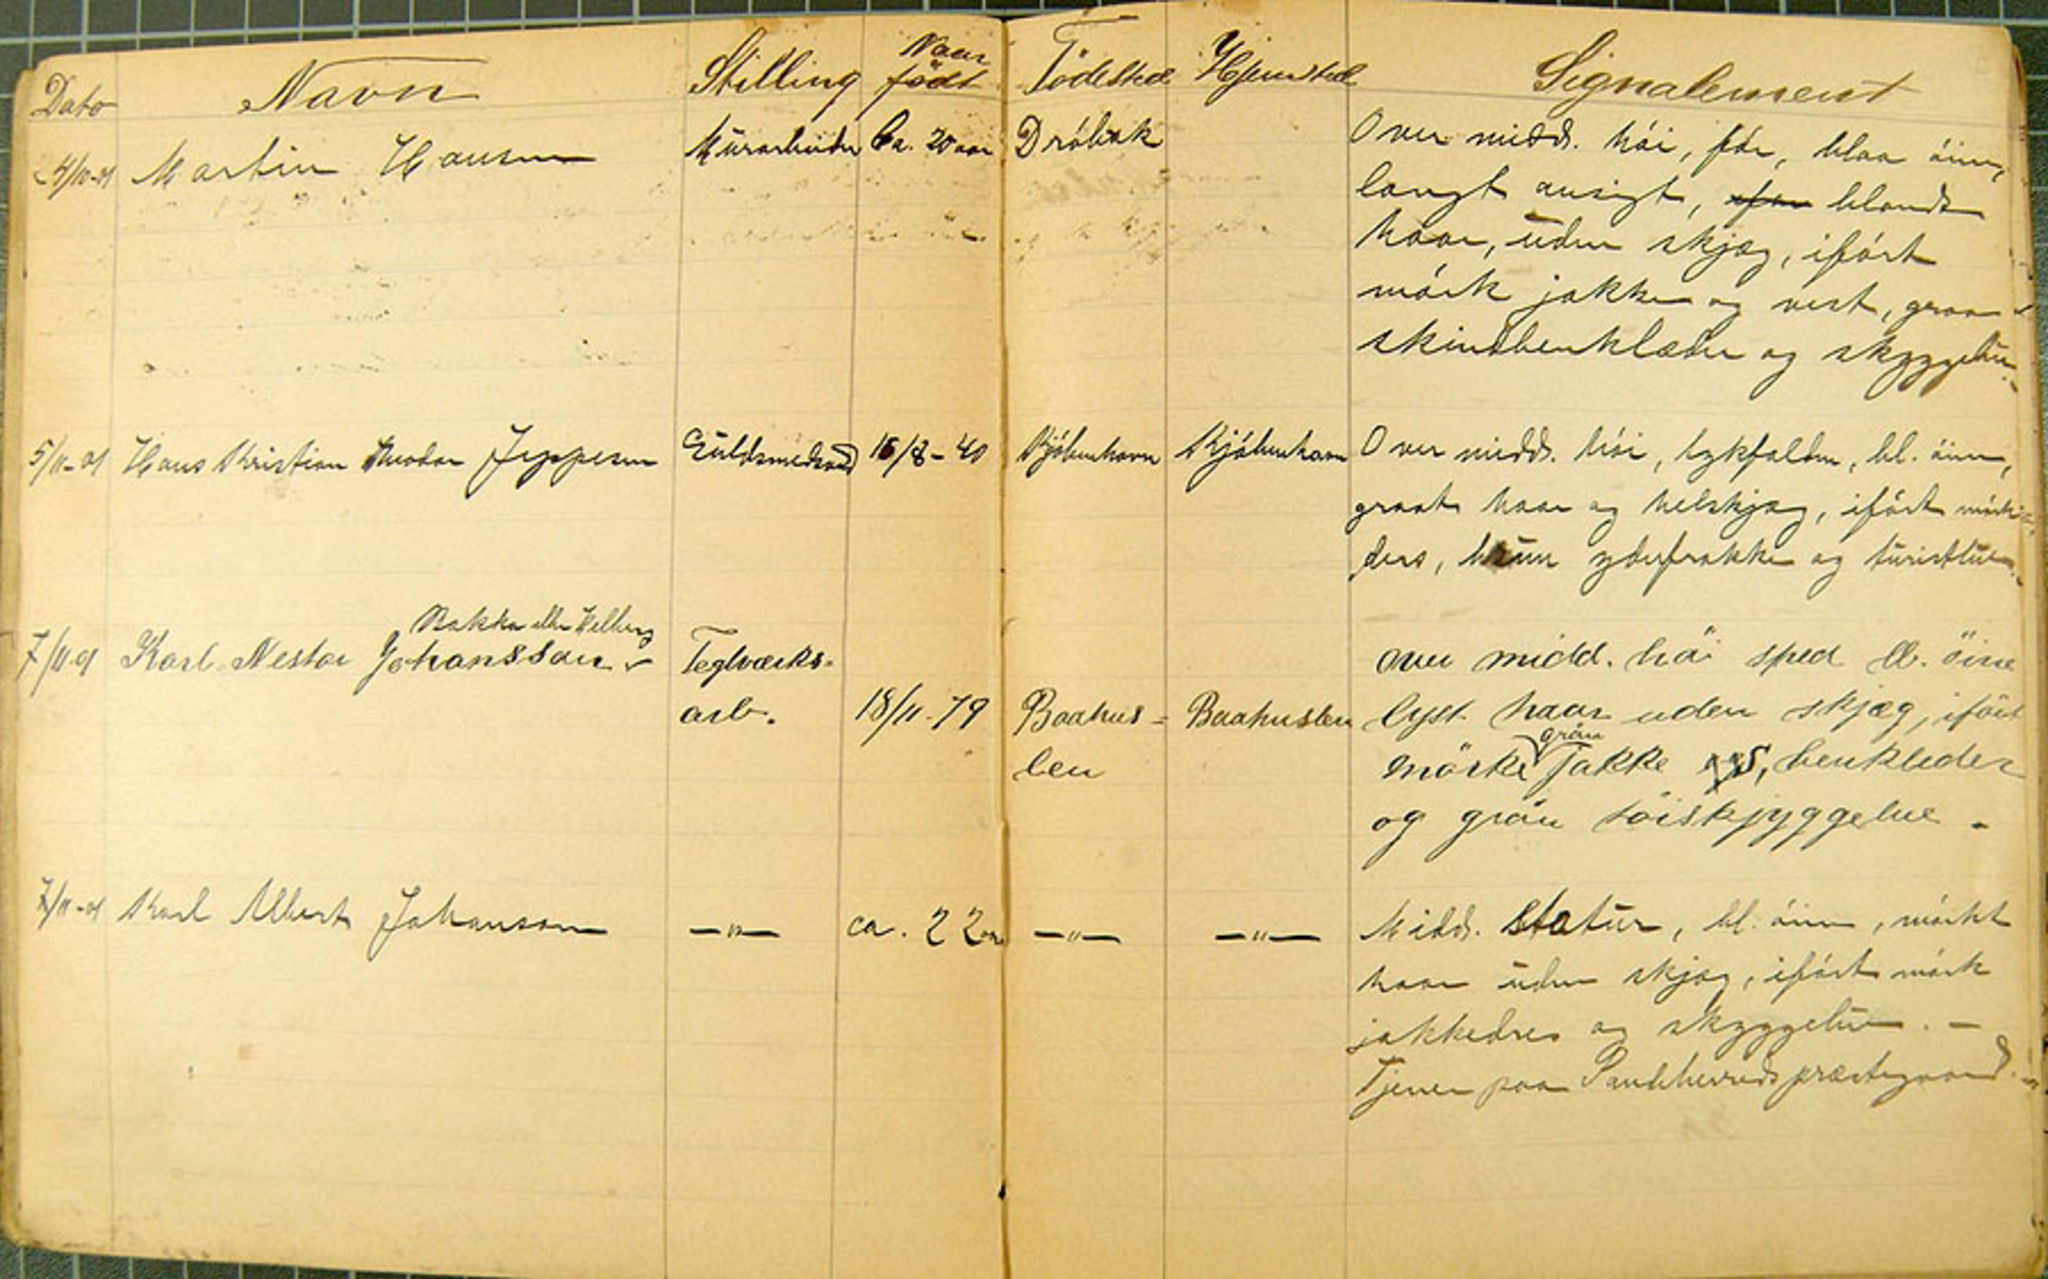 Dato Navn Stilling Naar født Fødested Hjemsted Signalement
24/10-01 Martin Hansen Murarbeider Ca. 20 aar Drøbak Over midd. høi, før, blaa øine,
langt ansigt, blondt
haar, uden skjæg, iført
mørk jakke og vest, graa
skindbenklæder og skyggelue.
5/11-01 Hans Kristian Theodor Jeppesen Guldsmedsvend 16/8-40 Kjøbenhavn Kjøbenhavn Over midd. høi, tykfalden, bl. øine,
graat haar og helskjæg, iført mørk
dres, brun yderfrakke og turistlue.
Bakka eller Helberg
7/11 01 Karl Nestor Johanssen Teglværks- over midd. høi sped bl. öine
arb. 18/11-79 Baahus- Baahuslen lyst haar uden skjæg, ifört
len mörke grön Jakke, benkleder
og grön söiskjyggelue -
7/11-01 Karl Albert Johanson —"— ca. 22 aar —"— —"— Midd. statur, bl. øine, mørkt
haar uden skjæg, iført mørk
jakkedres og skyggelue. -
Tjener paa præstegaard.